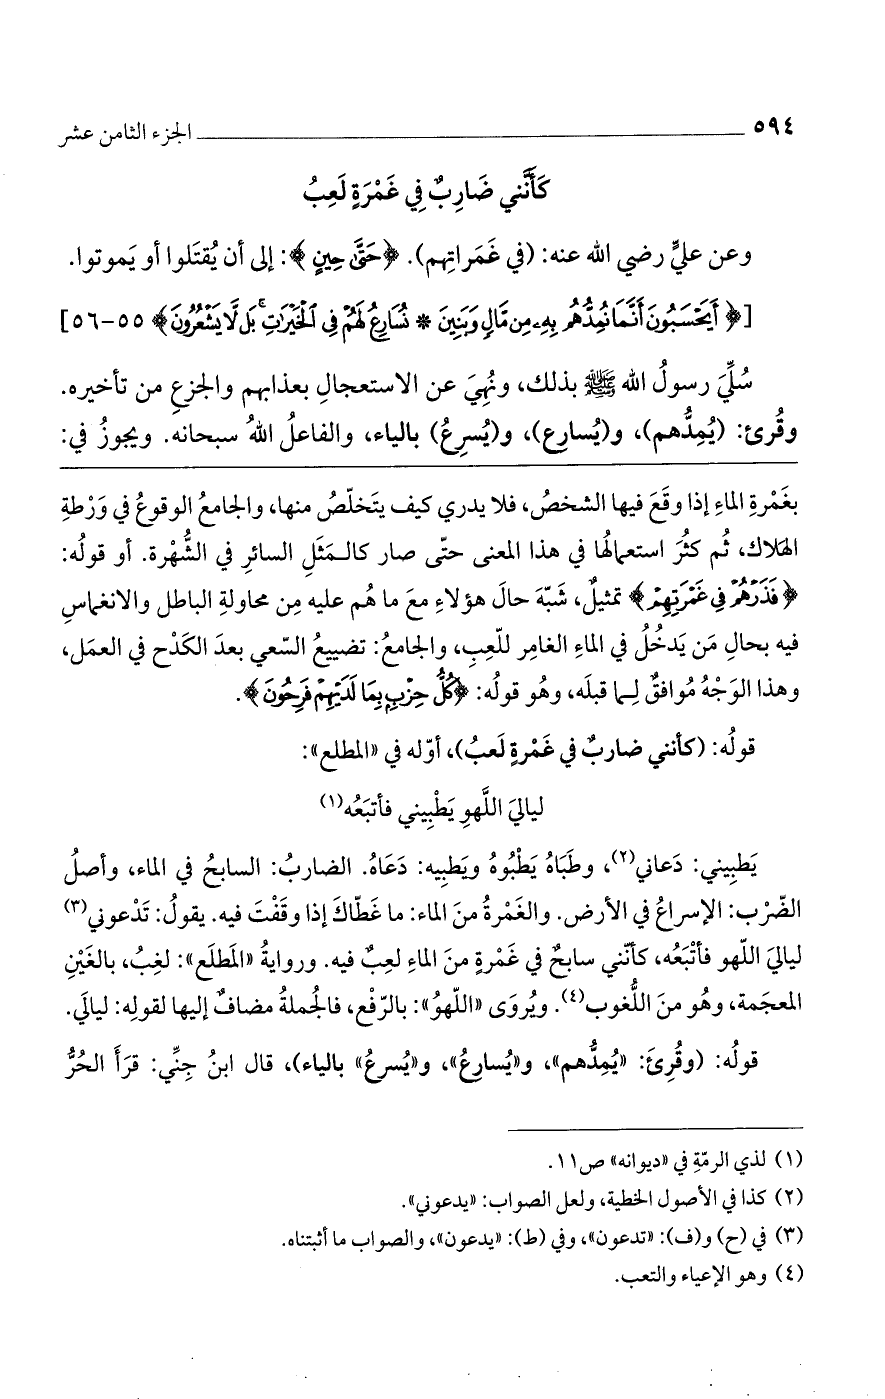 ٥٩٤ ــــــــــــــــــــ الجزء الثامن عشر
كَأَنَّني ضَارِبٌ فِي غَمْرَةٍ لَعِبُ
وعن عليٍّ رضي الله عنه: (في غَمَراتِهم). ﴿حَتَّىٰ حِينٍ﴾: إلى أن يُقتَلوا أو يَموتوا.
[﴿أَيَحْسَبُونَ أَنَّمَا نُمِدُّهُم بِهِۦ مِن مَّالٍ وَبَنِينَ * نُسَارِعُ لَهُمْ فِي ٱلْخَيْرَٰتِ ۚ بَل لَّا يَشْعُرُونَ﴾ ٥٥-٥٦]
سُلِّيَ رسولُ الله ﷺ بذلك، ونُهِيَ عن الاستعجالِ بعذابهم والجزعِ من تأخيره.
وقُرئ: (يُمِدُّهم)، و(يُسارِع)، و(يُسرِعُ) بالياء، والفاعلُ اللهُ سبحانه. ويجوزُ في:
بغَمْرةِ الماءِ إذا وقَعَ فيها الشخصُ، فلا يدري كيف يتَخلّصُ منها، والجامعُ الوقوعُ في وَرْطةِ
الهَلاك، ثُم كثُرَ استعمالُها في هذا المعنى حتّى صار كالـمَثَلِ السائرِ في الشُّهْرة. أو قولُه:
﴿فَذَرْهُمْ فِي غَمْرَتِهِمْ﴾ تمثيلٌ، شَبّهَ حالَ هؤلاءِ معَ ما هُم عليه مِن محاولةِ الباطل والانغماسِ
فيه بحالِ مَن يَدخُلُ في الماءِ الغامِر للّعِبِ، والجامعُ: تضييعُ السّعي بعدَ الكَدْح في العمَل،
وهذا الوَجْهُ مُوافقٌ لِـما قبلَه، وهُو قولُه: ﴿كُلُّ حِزْبٍ بِمَا لَدَيْهِمْ فَرِحُونَ﴾.
قولُه: (كأنني ضاربٌ في غَمْرةٍ لَعبُ)، أوّله في «المطلع»:
لياليَ اللَّهوِ يَطْبِيني فأتبَعُه(١)
يَطبِيني: دَعاني(٢)، وطَبَاهُ يَطْبُوهُ ويَطبِيه: دَعَاهُ. الضاربُ: السابحُ في الماء، وأصلُ
الضّرْب: الإسراعُ في الأرض. والغَمْرةُ منَ الماء: ما غَطّاكَ إذا وقَفْتَ فيه. يقولُ: تَدْعوني(٣)
لياليَ اللّهو فأتْبَعُه، كأنّني سابحٌ في غَمْرةٍ منَ الماءِ لعِبٌ فيه. وروايةُ «المَطلَع»: لغِبُ، بالغَيْنِ
المعجَمة، وهُو منَ اللُّغوب(٤). ويُروَى «اللّهوُ»: بالرّفْع، فالجُملةُ مضافٌ إليها لقولِه: لياليَ.
قولُه: (وقُرِئَ: «يُمِدُّهم»، و«يُسارِعُ»، و«يُسرعُ» بالياء)، قال ابنُ جِنِّي: قرَأَ الحُرُّ
(١) لذي الرمّةِ في «ديوانه» ص١١.
(٢) كذا في الأصول الخطية، ولعل الصواب: «يدعوني».
(٣) في (ح) و(ف): «تدعون»، وفي (ط): «يدعون»، والصواب ما أثبتناه.
(٤) وهو الإعياء والتعب.